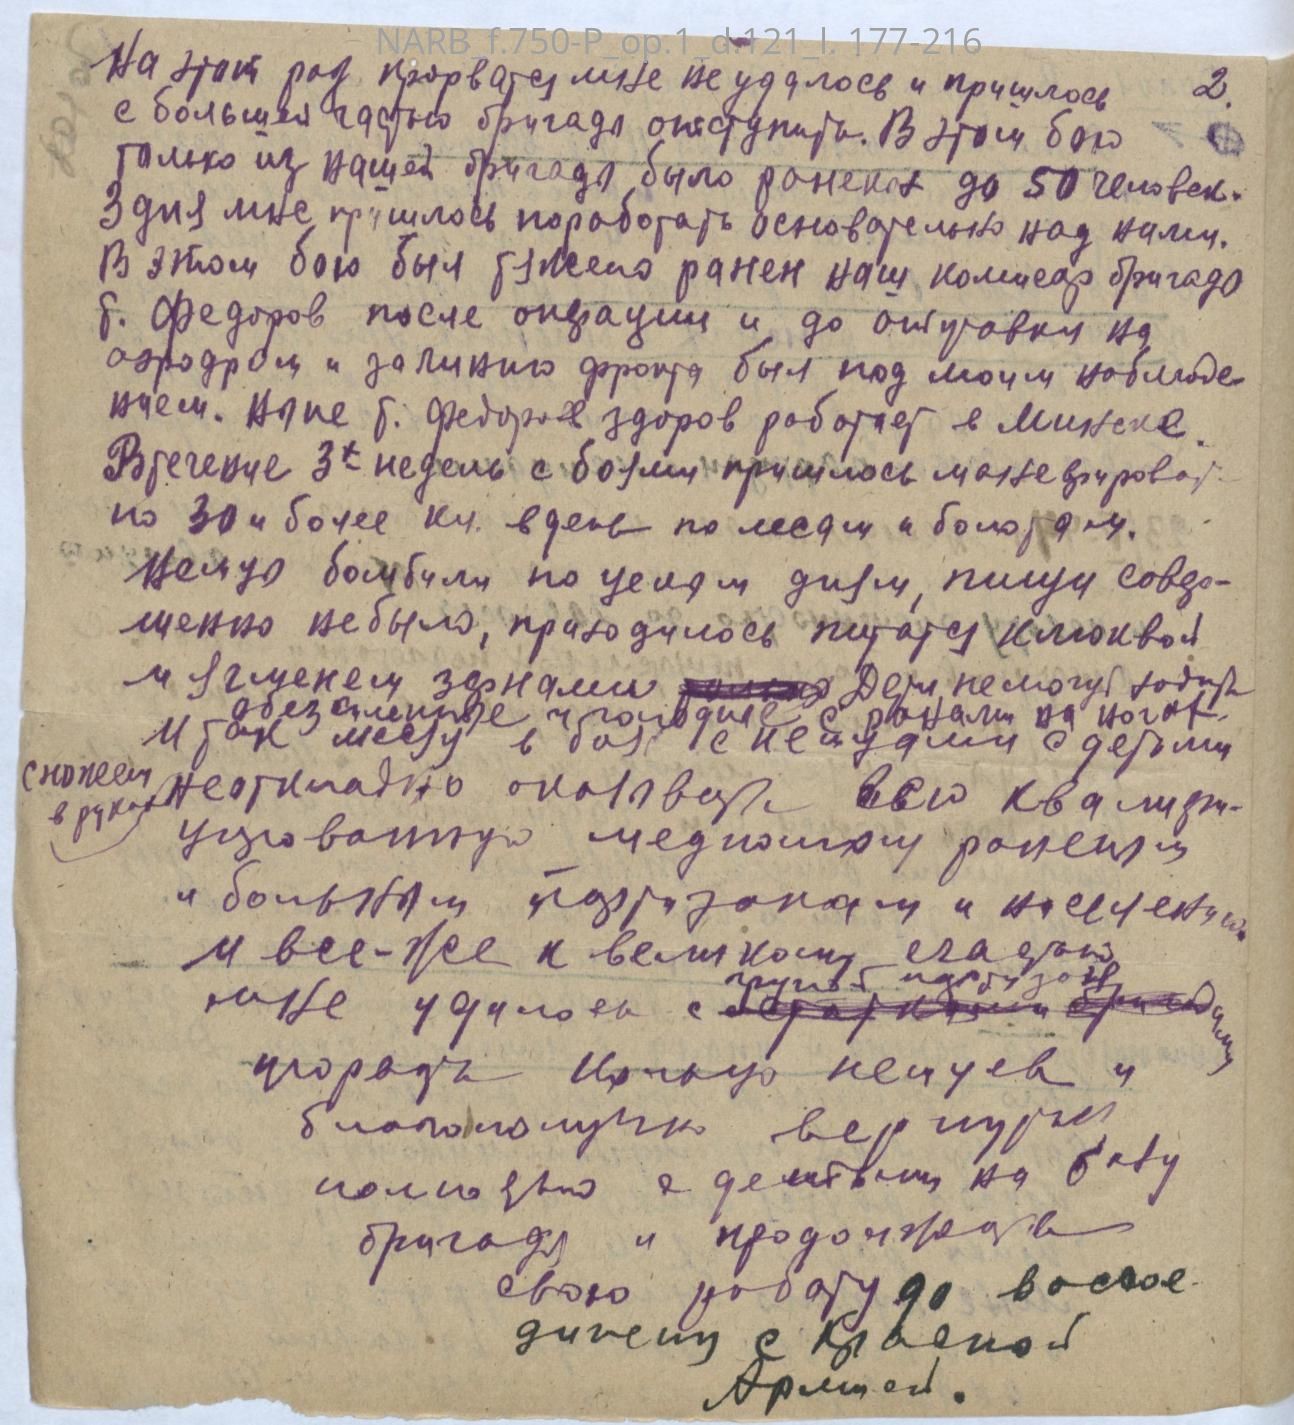 NARB_f.750-P_op.1_d.121_l. 177-216
2.
На этот раз прорватся мне не удалось и пришлось
с большей частью бригады отступить. В этом бою
только из нашей бригады было раненых до 50 человек.
3 дня мне пришлось поработать основательно над ними.
В этом бою был тяжело ранен наш комисар бригады
т. Федоров после операции и до отправки на
аэродром и за линию фронта был под моим наблюде-
нием. Ныне т. Федоров здоров работает в Минске.
Втечение 3х недель с боями пришлось маневрироват
по 30 и более км. в день по лесам и болотам.
Немцы бомбили по целым дням, пищи совер-
шенно небыло, приходилось питатся клюквой
и ячменем зернами Дети немогут ходить
обезсиленные и голодные с ранами на ногах.
И так между в боях с немцами с детьми
с ножем
в руках
неоткладно оказывать всю квалифи-
цированную медпомощ раненым
и больным партизанам и населению.
И все-же к великому счастью
группой партизан
мне удалось с остатками бригады
прорвать кольцо немцев и
благополучно вернутся
полностью с детьми на базу
бригады и продолжать
свою работу до воссое-
динения с Красной
Армией.